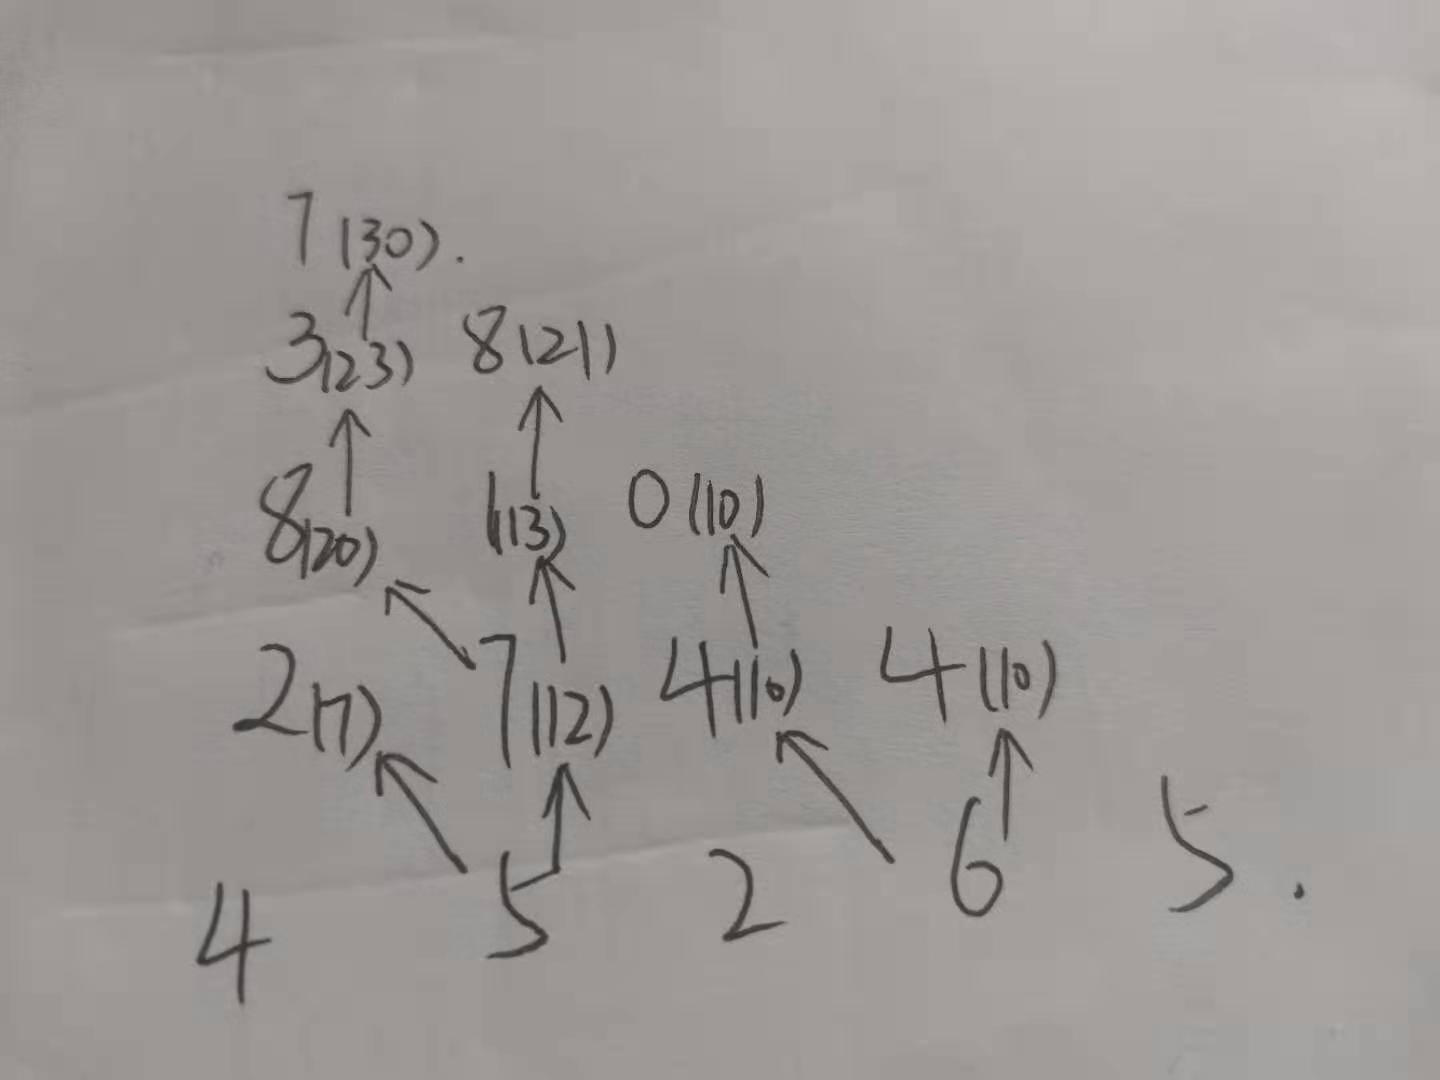 7(30).
3(23) 8(21)
8(20) 1(13) 0(10)
2(7) 7(12) 4(10) 4(10)
4 5 2 6 5.